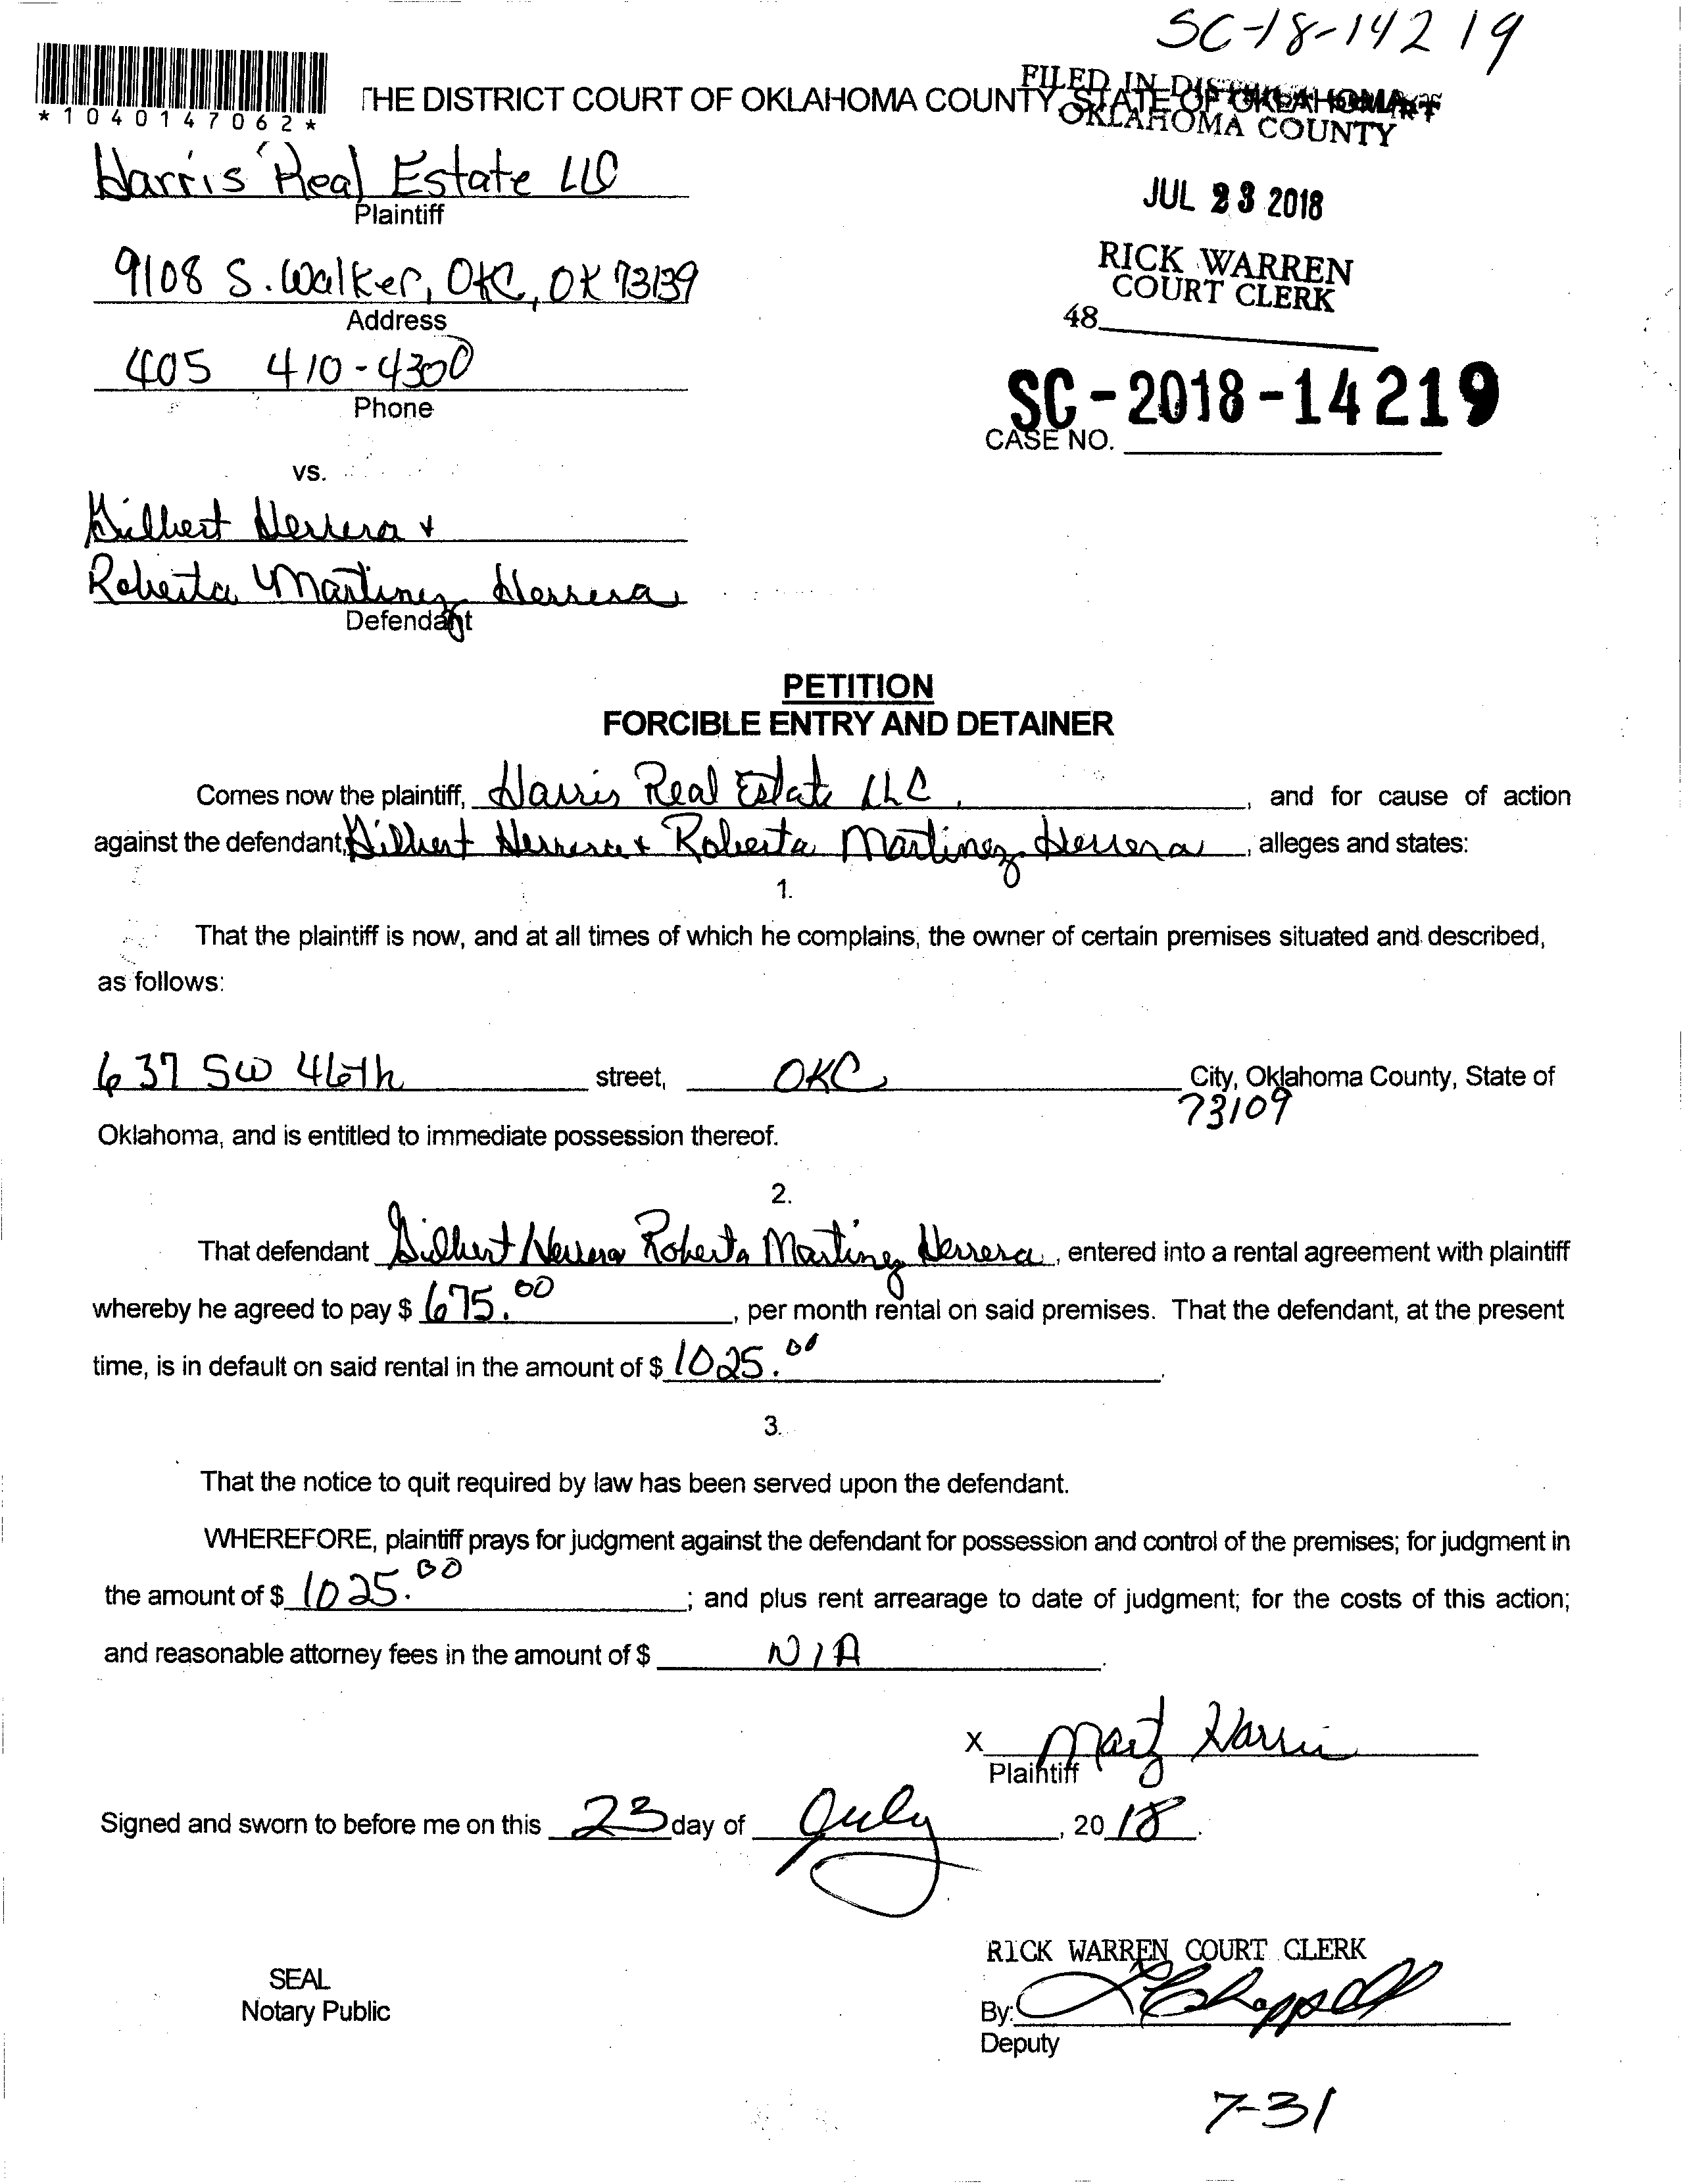 SC-18-14219
*1040147062*
THE DISTRICT COURT OF OKLAHOMA COUNTY, STATE OF OKLAHOMA
FILED IN DISTRICT COURT
OKLAHOMA COUNTY
Harris Real Estate LLC
Plaintiff
JUL 23 2018
9108 S. Walker, OKC, OK 73139
Address
RICK WARREN
COURT CLERK
48
405 410-4300
Phone
SC-2018-14219
CASE NO.
vs.
Gilbert Herrera +
Roberta Martinez Herrera
Defendant
PETITION
FORCIBLE ENTRY AND DETAINER
Comes now the plaintiff, Harris Real Estate LLC, and for cause of action
against the defendant, Gilbert Herrera + Roberta Martinez Herrera, alleges and states:
1.
That the plaintiff is now, and at all times of which he complains, the owner of certain premises situated and described,
as follows:
637 SW 46th street, OKC City, Oklahoma County, State of
73109
Oklahoma, and is entitled to immediate possession thereof.
2.
That defendant Gilbert Herrera Roberta Martinez Herrera, entered into a rental agreement with plaintiff
whereby he agreed to pay $ 675.00, per month rental on said premises. That the defendant, at the present
time, is in default on said rental in the amount of $ 1025.00.
3.
That the notice to quit required by law has been served upon the defendant.
WHEREFORE, plaintiff prays for judgment against the defendant for possession and control of the premises; for judgment in
the amount of $ 1025.00; and plus rent arrearage to date of judgment; for the costs of this action;
and reasonable attorney fees in the amount of $ N/A.
X Marty Harris
Plaintiff
Signed and sworn to before me on this 23 day of July, 2018.
RICK WARREN COURT CLERK
SEAL
Notary Public
By:
Deputy
7-31